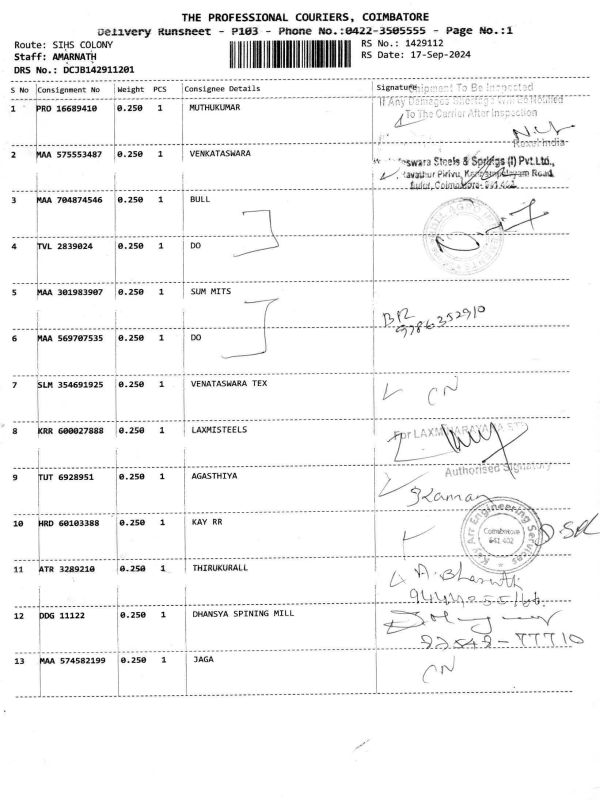 THE PROFESSIONAL COURIERS, COIMBATORE
Delivery Runsheet - P103 - Phone No.:0422-3505555 - Page No.:1
Route: SIHS COLONY
RS No.: 1429112
Staff: AMARNATH
RS Date: 17-Sep-2024
DRS No.: DCJB142911201
S No Consignment No Weight PCS Consignee Details Signature
Shipment To Be Inspected
If Any Damages Shortage Will Be Notified
To The Carrier After Inspection
1 PRO 16689410 0.250 1 MUTHUKUMAR
2 MAA 575553487 0.250 1 VENKATASWARA
eswara Steels & Springs (I) Pvt.Ltd.,
Ravathur Pirivu, Road,
Coimbatore- 641 402
3 MAA 704874546 0.250 1 BULL
4 TVL 2839024 0.250 1 DO
5 MAA 301983907 0.250 1 SUM MITS
6 MAA 569707535 0.250 1 DO
7 SLM 354691925 0.250 1 VENATASWARA TEX CN
8 KRR 600027888 0.250 1 LAXMISTEELS
For LAXMI
Authorised Signatory
9 TUT 6928951 0.250 1 AGASTHIYA
10 HRD 60103388 0.250 1 KAY RR
Kay Arr Engineering Services
Coimbatore
641 402
11 ATR 3289210 0.250 1 THIRUKURALL
12 DDG 11122 0.250 1 DHANSYA SPINING MILL
13 MAA 574582199 0.250 1 JAGA CN